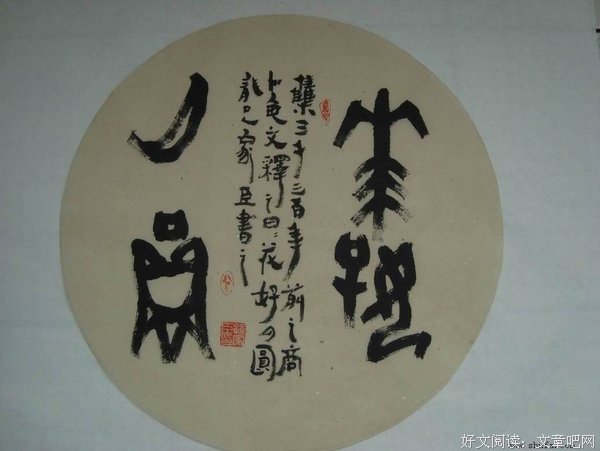 花好
集三千三百年前之商
卜龟文釋之曰:花好月圓
家臣書之
月圓
好文阅读：文章吧网